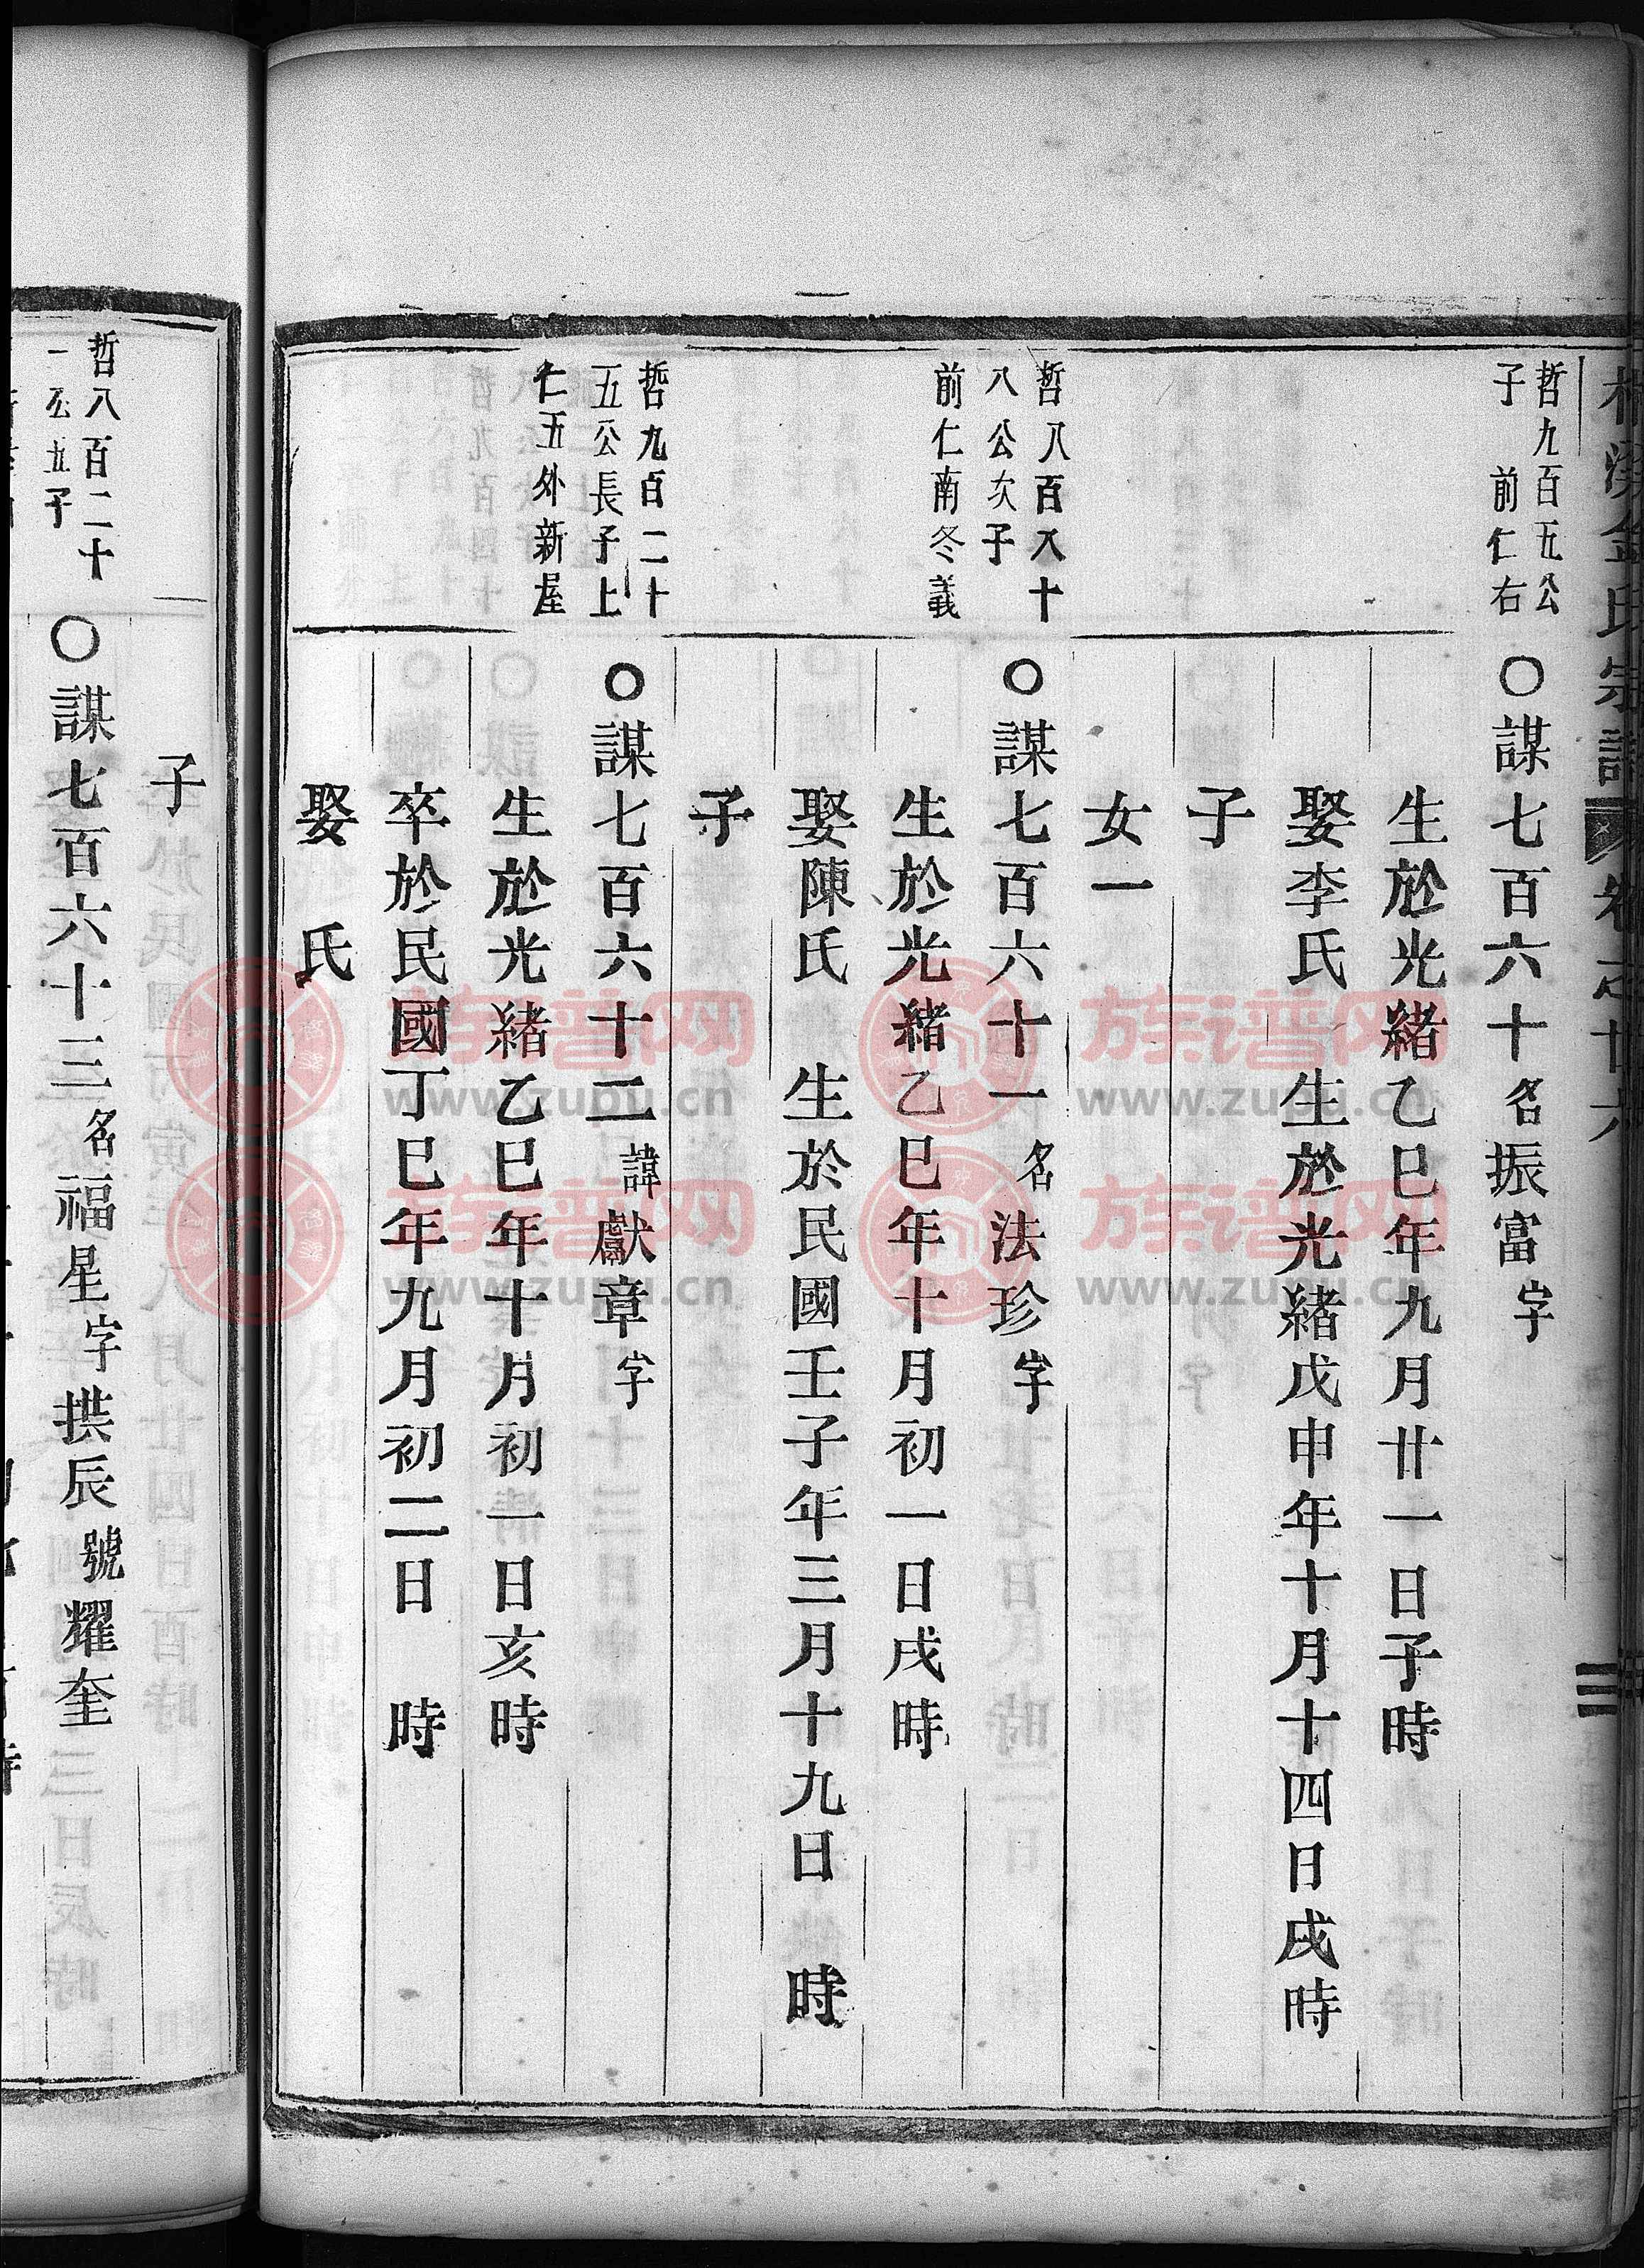 金氏宗譜 卷之廿六
哲九百五公
子 前仁右
〇謀七百六十名振富字
生於光緒乙巳年九月廿一日子時
娶李氏 生於光緒戊申年十月十四日戌時
子
女一
哲八百八十
八公次子
前仁南冬義
〇謀七百六十一名法珍字
生於光緒乙巳年十月初一日戌時
娶陳氏 生於民國壬子年三月十九日 時
子
哲九百二十
五公長子上
仁五外新屋
〇謀七百六十二諱獻章字
生於光緒乙巳年十月初一日亥時
卒於民國丁巳年九月初二日 時
娶 氏
子
哲八百二十
一公五子
〇謀七百六十三名福星字拱辰號耀奎
族谱网
www.zupu.cn
族谱网
www.zupu.cn
族谱网
www.zupu.cn
族谱网
www.zupu.cn